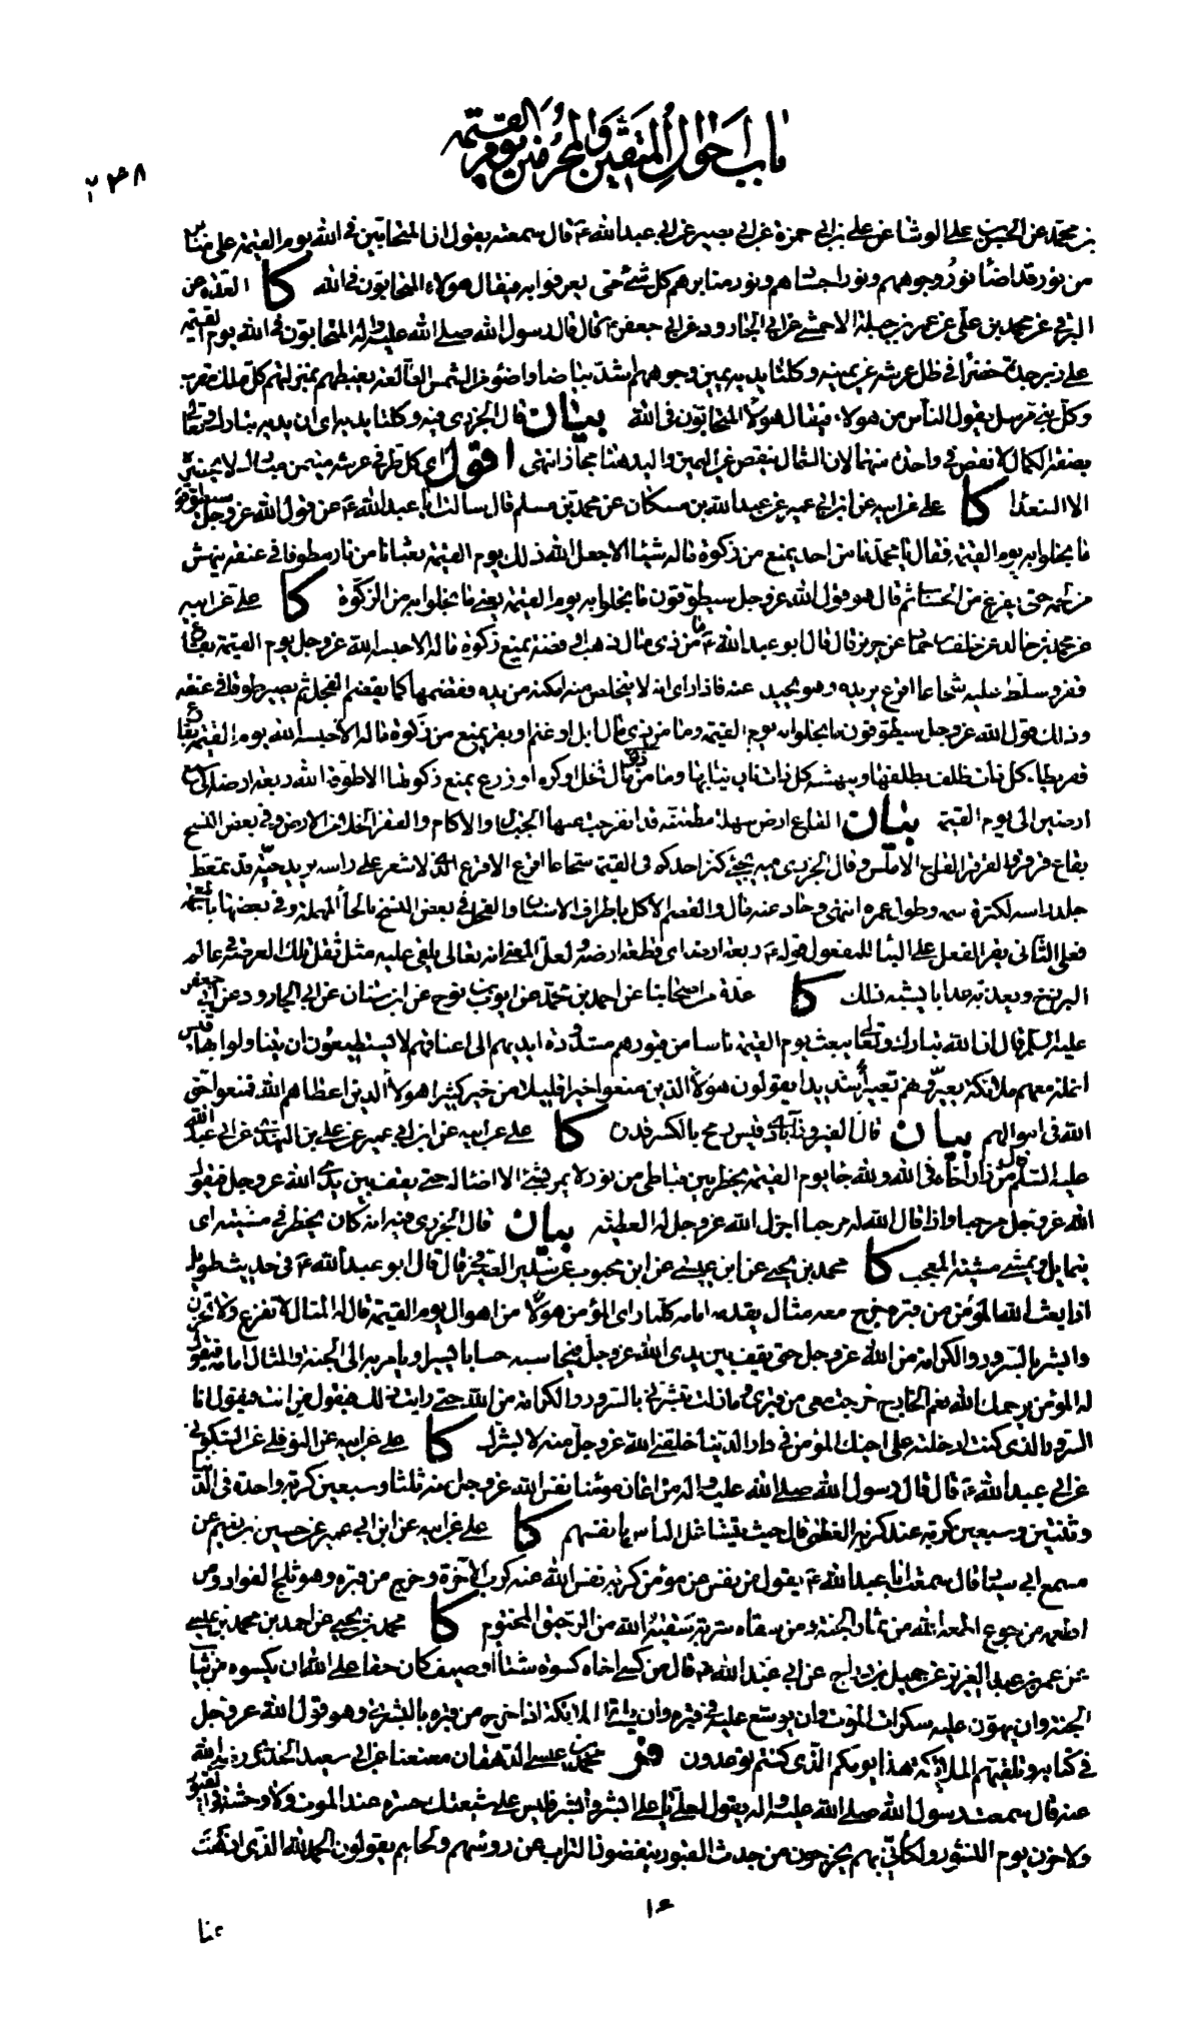 باب احوال المتقين والمجرمين يوم القيمة
٢٤٨
بن محمد عن الحسن بن علي الوشا عن علي بن ابي حمزة عن ابي بصير عن ابي عبد الله ع قال سمعته يقول ان المتحابين في الله يوم القيمة على منابر
من نور قد اضاء نور وجوههم ونور اجسادهم ونور منابرهم كل شئ حتى يعرفوا به فيقال هولاء المتحابون في الله كا العدة عن
البرقي عن محمد بن علي عن عمر بن جبلة الاحمسي عن ابي الجارود عن ابي جعفر ع قال قال رسول الله صلى الله عليه واله المتحابون في الله يوم القيمة
على زبرجدة خضراء في ظل عرشه عن يمينه وكلتا يديه يمين وجوههم اشد بياضا واضوء من الشمس الطالعة يغبطهم بمنزلتهم كل ملك مقرب
وكل نبي مرسل يقول الناس من هولاء فيقال هولاء المتحابون في الله بيان قال الجزري فيه وكلتا يديه اي ان يديه تبارك وتعالى
بصفة الكمال لا نقص في واحدة منهما لان الشمال ينقص عن اليمين واليد هنا مجاز انتهى اقول اي كل طرفي عرشه متيمن مبارك لا يحضره
الا السعداء كا علي عن ابيه عن ابن ابي عمير عن عبد الله بن مسكان عن محمد بن مسلم قال سالت ابا عبد الله ع عن قول الله عز وجل سيطوقون
ما بخلوا به يوم القيمة فقال يا محمد ما من احد يمنع من زكوة ماله شيئا الا جعل الله ذلك يوم القيمة ثعبانا من نار مطوقا في عنقه ينهش
من لحمه حتى يفرغ من الحساب ثم قال هو قول الله عز وجل سيطوقون ما بخلوا به يوم القيمة يعني ما بخلوا به من الزكوة كا علي عن ابيه
عن محمد بن خالد عن خلف بن حماد عن حريز قال قال ابو عبد الله ع ما من ذي مال ذهب او فضة يمنع زكوة ماله الا حبسه الله عز وجل يوم القيمة بقاع
قفر وسلط عليه شجاعا اقرع يريده وهو يحيد عنه فاذا راى انه لا يتخلص منه امكنه من يده فقضمها كما يقضم الفجل ثم يصير طوقا في عنقه
وذلك قول الله عز وجل سيطوقون ما بخلوا به يوم القيمة وما من ذي مال ابل او غنم او بقر يمنع من زكوة ماله الا حبسه الله يوم القيمة بقاع
قفر يطاه كل ذات ظلف بظلفها وينهشه كل ذات ناب بنابها وما من ذي مال نخل او كرم او زرع يمنع زكوتها الا طوقه الله ريعة ارضه الى سبع
ارضين الى يوم القيمة بيان القاع ارض سهلة مطمئنة قد انفرجت عنها الجبال والاكام والقفر الخلاء من الارض وفي بعض النسخ
بقاع قرقر والقرقر القاع الاملس وقال الجزري فيه يجئ كنز احدكم في القيمة شجاعا اقرع الاقرع الذي لا شعر على راسه يريد حية قد تمعط
جلد راسه لكثرة سمه وطول عمره انتهى وحاد عنه مال والقضم الاكل باطراف الاسنان والفحل في بعض النسخ بالحاء المهملة وفي بعضها بالجيم
فعلى الثاني يقرء الفعل على البناء للمفعول قوله ع ريعة ارضه اي قطعة ارضه ولعل المعنى انه تعالى يلقى عليه مثل ثقل تلك العرصة في عالم
البرزخ ويعذبه عذابا يشبه ذلك كا عدة من اصحابنا عن احمد بن محمد عن ايوب بن نوح عن ابن سنان عن ابي الجارود عن ابي جعفر
عليه السلام قال ان الله تبارك وتعالى يبعث يوم القيمة ناسا من قبورهم مشدودة ايديهم الى اعناقهم لا يستطيعون ان يتناولوا بها قيس
انملة معهم ملائكة يعيرونهم تعييرا شديدا يقولون هولاء الذين منعوا خيرا قليلا من خير كثير هولاء الذين اعطاهم الله فمنعوا حق
الله في اموالهم بيان قال الفيروزآبادي قيس رمح بالكسر قدره كا علي عن ابيه عن ابن ابي عمير عن علي بن النهدي عن ابي عبد الله
عليه السلام قال من زار اخاه في الله ولله جاء يوم القيمة يخطر بين قباطي من نور لا يمر بشئ الا اضاء له حتى يقف بين يدي الله عز وجل فيقول
الله عز وجل مرحبا واذا قال الله له مرحبا اجزل الله عز وجل له العطية بيان قال الجزري فيه انه كان يخطر في مشيته اي
يتمايل ويمشي مشية المعجب كا محمد بن يحيى عن ابن عيسى عن ابن محبوب عن سدير الصيرفي قال قال ابو عبد الله ع في حديث طويل
اذا بعث الله المؤمن من قبره خرج معه مثال يقدمه امامه كلما راى المؤمن هولا من اهوال يوم القيمة قال له المثال لا تفزع ولا تحزن
وابشر بالسرور والكرامة من الله عز وجل حتى يقف بين يدي الله عز وجل فيحاسبه حسابا يسيرا ويامر به الى الجنة والمثال امامه فيقول
له المؤمن يرحمك الله نعم الخارج خرجت معي من قبري وما زلت تبشرني بالسرور والكرامة من الله حتى رايت ذلك فيقول من انت فيقول انا
السرور الذي كنت ادخلته على اخيك المؤمن في دار الدنيا خلقني الله عز وجل منه لابشرك كا علي عن ابيه عن النوفلي عن السكوني
عن ابي عبد الله ع قال قال رسول الله صلى الله عليه واله من اعان مؤمنا نفس الله عز وجل عنه ثلثا وسبعين كربة واحدة في الدنيا
وثنتين وسبعين كربة عند كربه العظمى قال حيث يتشاغل الناس بانفسهم كا علي عن ابيه عن ابن ابي عمير عن حسين بن نعيم عن
مسمع ابي سيار قال سمعت ابا عبد الله ع يقول من نفس عن مؤمن كربة نفس الله عنه كرب الآخرة وخرج من قبره وهو ثلج الفواد ومن
اطعمه من جوع اطعمه الله من ثمار الجنة ومن سقاه شربة سقاه الله من الرحيق المختوم كا محمد بن يحيى عن احمد بن محمد بن عيسى
عن عمر بن عبد العزيز عن جميل بن دراج عن ابي عبد الله ع قال من كسى اخاه كسوة شتاء او صيف كان حقا على الله ان يكسوه من ثياب
الجنة وان يهون عليه سكرات الموت وان يوسع عليه في قبره وان يلقى الملائكة اذا خرج من قبره بالبشرى وهو قول الله عز وجل
في كتابه وتتلقيهم الملائكة هذا يومكم الذي كنتم توعدون فر محمد بن عيسى الدهقان معنعنا عن ابي سعيد الخدري رضي الله
عنه قال سمعت رسول الله صلى الله عليه واله يقول لعلي يا علي ابشر وابشر فليس على شيعتك حسرة عند الموت ولا وحشة في القبور
ولا حزن يوم النشور ولكاني بهم يخرجون من جدث القبور ينفضون التراب عن رؤسهم ولحاهم يقولون الحمد لله الذي اذهب
١٤
عنا